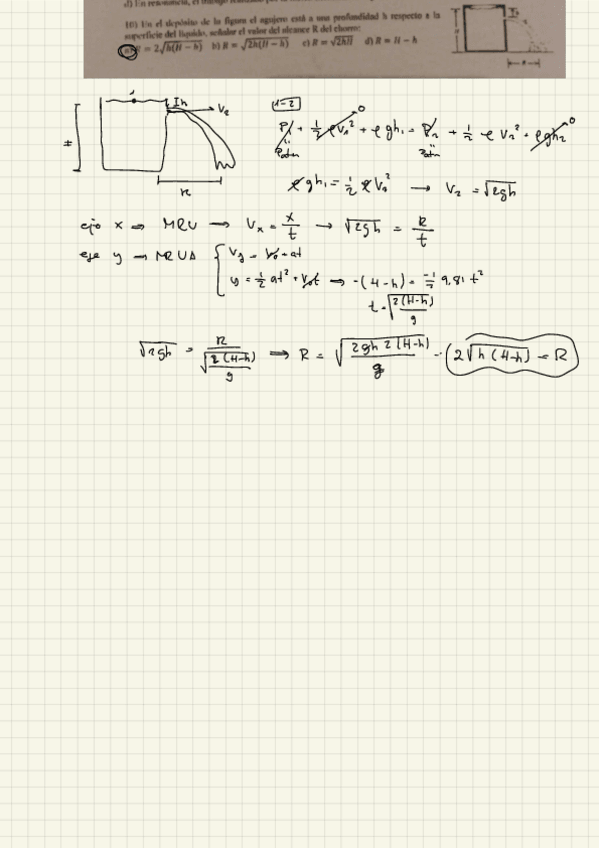 d) En resonancia, el
10) En el depósito de la figura el agujero está a una profundidad h respecto a la
superficie del líquido, señalar el valor del alcance R del chorro:
a) R = 2√h(H − h) b) R = √2h(H − h) c) R = √2hH d) R = H − h
h V₂
H
R
1-2
P₁ + 1/2 ρV₁² + ρgh₁ = P₂ + 1/2 ρV₂² + ρgh₂
0 0
Patm Patm
ρgh₁ = 1/2 ρV₂² → V₂ = √2gh
eje x ⇒ MRU → Vx = x/t → √2gh = R/t
eje y → MRUA { Vy = V₀ + at
y = 1/2 at² + V₀t ⇒ -(H-h) = -1/2 9,81 t²
t = √2(H-h)/g
√2gh = R/√2(H-h)/g ⇒ R = √2gh 2(H-h)/g = 2√h(H-h) = R